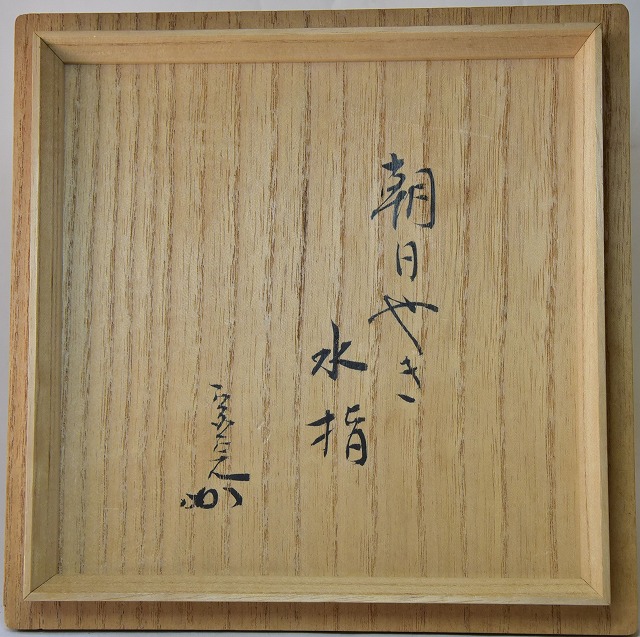 朝日やき
水指